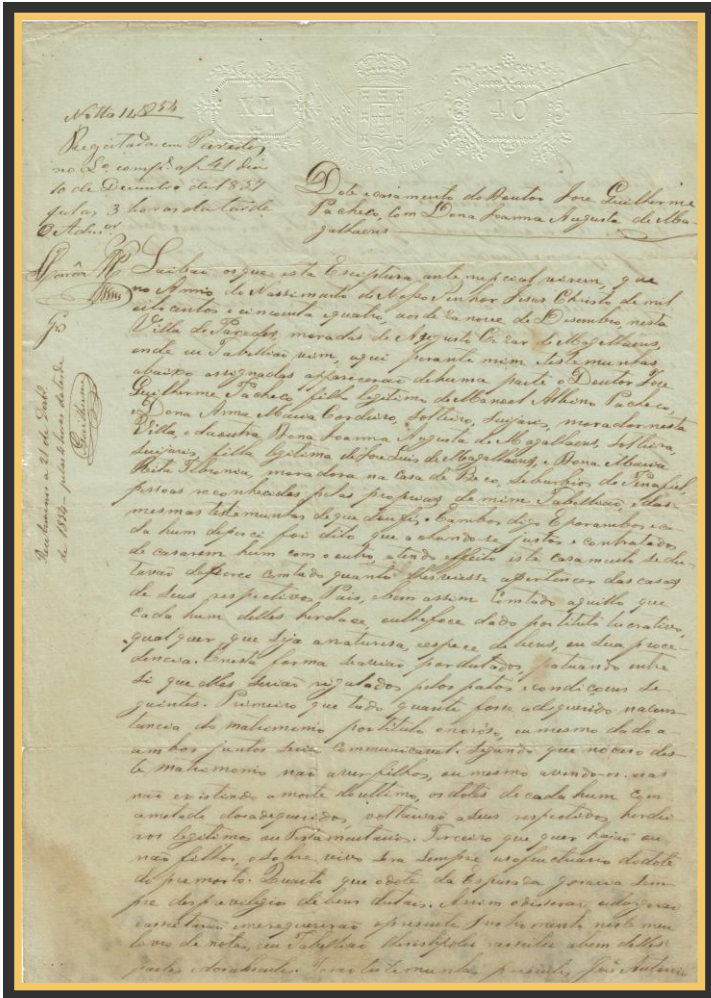 XL
40
Notto 11,8254
Registada em Paredes
no Lo comp.e af. 41 dia
10 de Dezembro de 1854
pelas 3 horas da tarde
O Adm.or
Dote e casamento do Doutor Jose Guilherme
Pacheco, com Dona Joanna Augusta de Ma-
galhaens
Saibão os que esta Escriptura antenupcial virem, que
no Anno do Nassimento de Nosso Senhor Jesus Christo de mil
oitocentos e cincoenta e quatro, aos de Dezembro, nesta
Villa de Paredes, moradas de Augusto Cezar de Magalhaens,
onde eu Tabellião vim, aqui perante mim e testemunhas
abaixo assignadas apparecerão de huma parte o Doutor Joze
Guilherme Pacheco, filho legitimo de Manoel Albino Pacheco,
e Dona Anna Maria Cordeiro, solteiro, suijuris, morador nesta
Villa, e da outra Dona Joanna Augusta de Magalhaens, solteira,
suijuris, filha legitima de Jose Luis de Magalhaens, e Dona Maria
Rita moradora na casa do Beco, suburbios de Penafiel,
pessoas reconhecidas pelas proprias de mim Tabellião, e das
mesmas testemunhas de que dou fé, e digo E por ambos e ca-
da hum de per ci foi dito que achando-se justos e contratados
de casarem hum com o outro, a tendo effeito este casamento se do-
tavão com tudo quanto lhes viesse a pertencer das casas
de seus respectivos Pais, e bem assim com tudo aquillo que
cada hum delles herdace, ou lhe foce dado por titulo lucrativo,
qualquer que seja a naturesa, especie de bens, ou sua proce-
dencia. E nesta forma por dotados, patuando entre
si que elles serião regulados pelos patos e condiçoens se-
guintes. Primeiro que todo quanto fosse adequerido na cons-
tancia do matremonio por titulo onoroso, ou mesmo dado a
ambos juntos seria communicavel. Segundo que no caso des-
te matrimonio não aver filhos, ou mesmo avendo-os mas
não existindo a morte do ultimo, os dotes de cada hum com
a metade dos adequeridos, voltarião a seus respectivos herdei-
ros legitimos ou Testamentarios. Terceiro que quer hajão ou
não filhos, o sobre vivo sera sempre usofructuario do dote
do premorto. Quarto que o dote da Esposada gosaria sem-
pre dos previlegios de bens dotais. Assim o diserão
e me requererão o presente Instromento neste meu
livro de notas, eu Tabellião a bem delles
partes testemunhas presentes Jose Antonio
de 1854 pelas horas da tarde
Guilherme